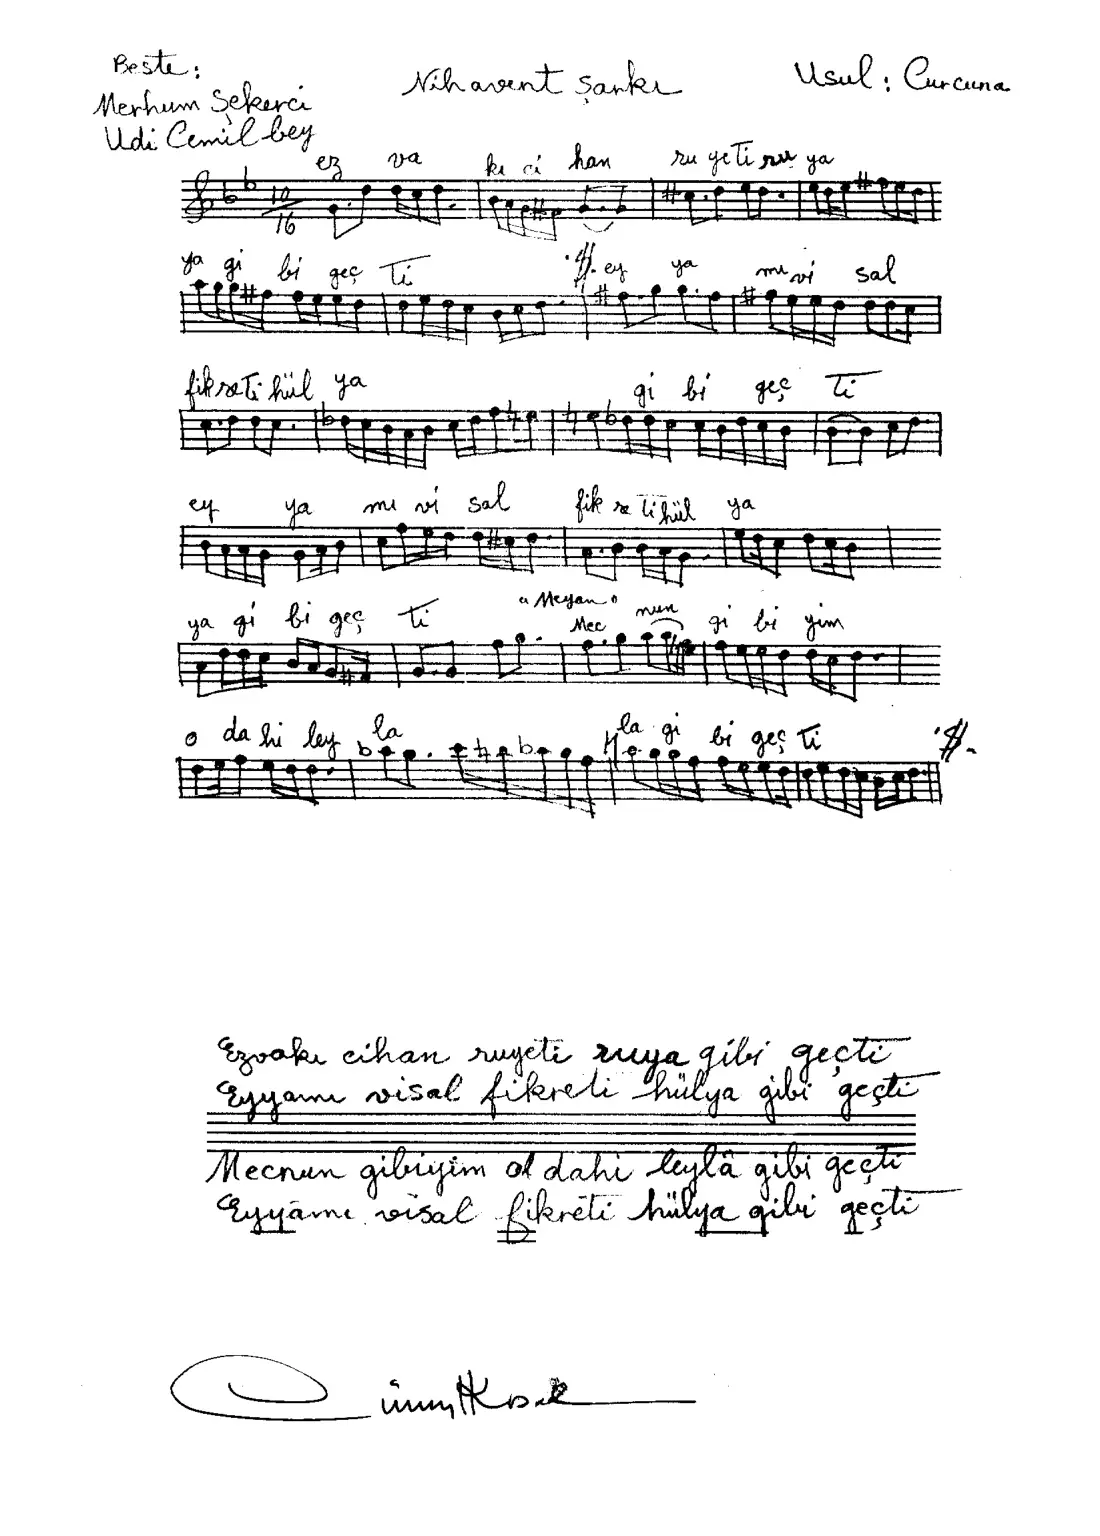 Beste :
Merhum Şekerci
Udi Cemil bey
Nihavent Şarkı
Usul : Curcuna
ez va kı ci han ru ye ti ru ya
10/16
ya gi bi geç ti ey ya mı vi sal
fik re ti hül ya gi bi geç ti
ey ya mı vi sal fik re ti hül ya
ya gi bi geç ti "Meyan" Mec nun gi bi yim
o da hi ley la la gi bi geç ti
Ezvakı cihan ruyeti ruya gibi geçti
Eyyamı visal fikreti hülya gibi geçti
Mecnun gibiyim ol dahi leylâ gibi geçti
Eyyâmı visal fikreti hülya gibi geçti